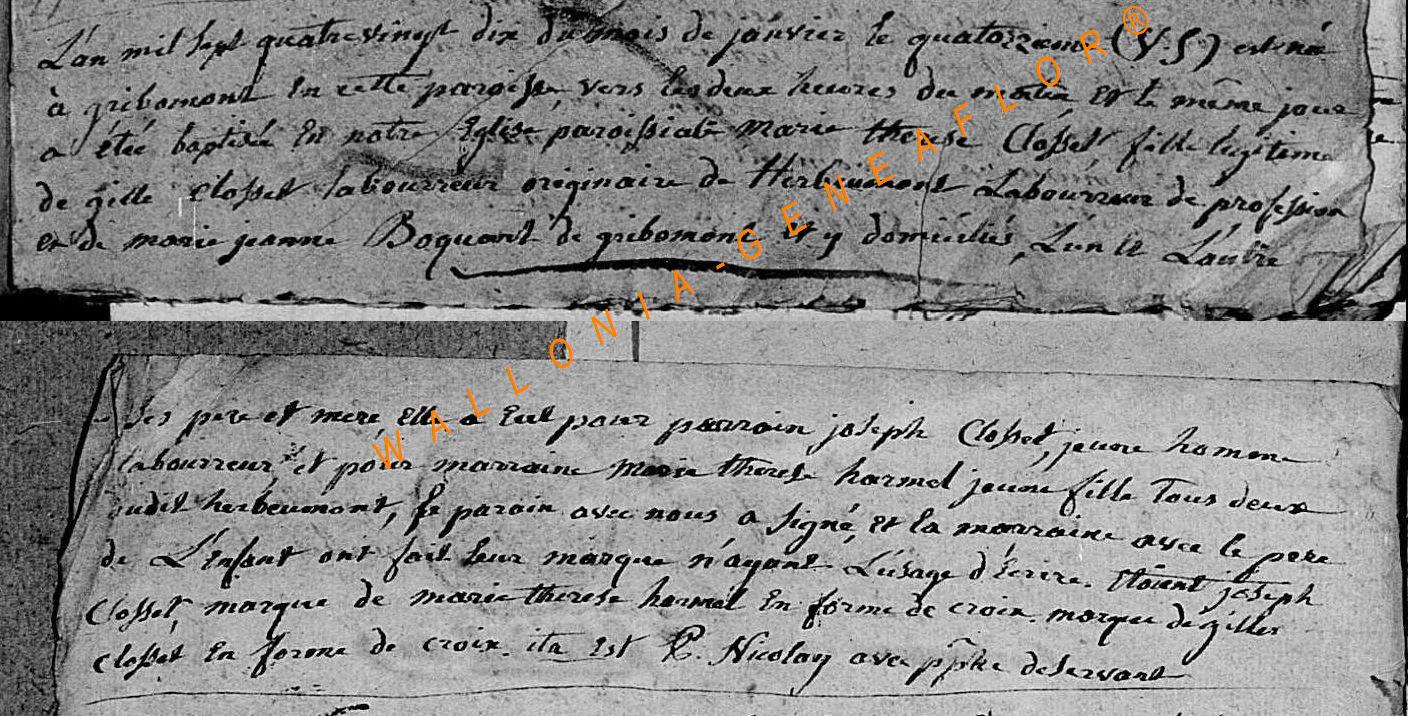 L'an mil sept quatrevingt dix du mois de janvier le quatorzieme (V.S) est née
à gribomont En cette paroisse vers les deux heures du matin Et le même jour
a étée baptisée En notre Eglise paroissiale marie therese Closset fille legitime
de gille Closset labourreur originaire de Herbeumont Labourreur de profession
et de marie jeanne Boquant de gribomont Et y domiciliés, L'un et L'autre
ses pere et mere, Elle a Eut pour parrain joseph Closset, jeune homme
labourreur, et pour marraine marie therese harmel jeune fille Tous deux
dudit herbeumont, le parain avec nous a signé, Et la marraine avec le pere
de L'Enfant ont fait leur marque n'ayant L'usage d'Ecrire. Etoient joseph
Closset, marque de marie therese harmel En forme de croix. marque de gilles
closset En forme de croix. ita Est P. Nicolay deservant
WALLONIA-GENEAFLOR®